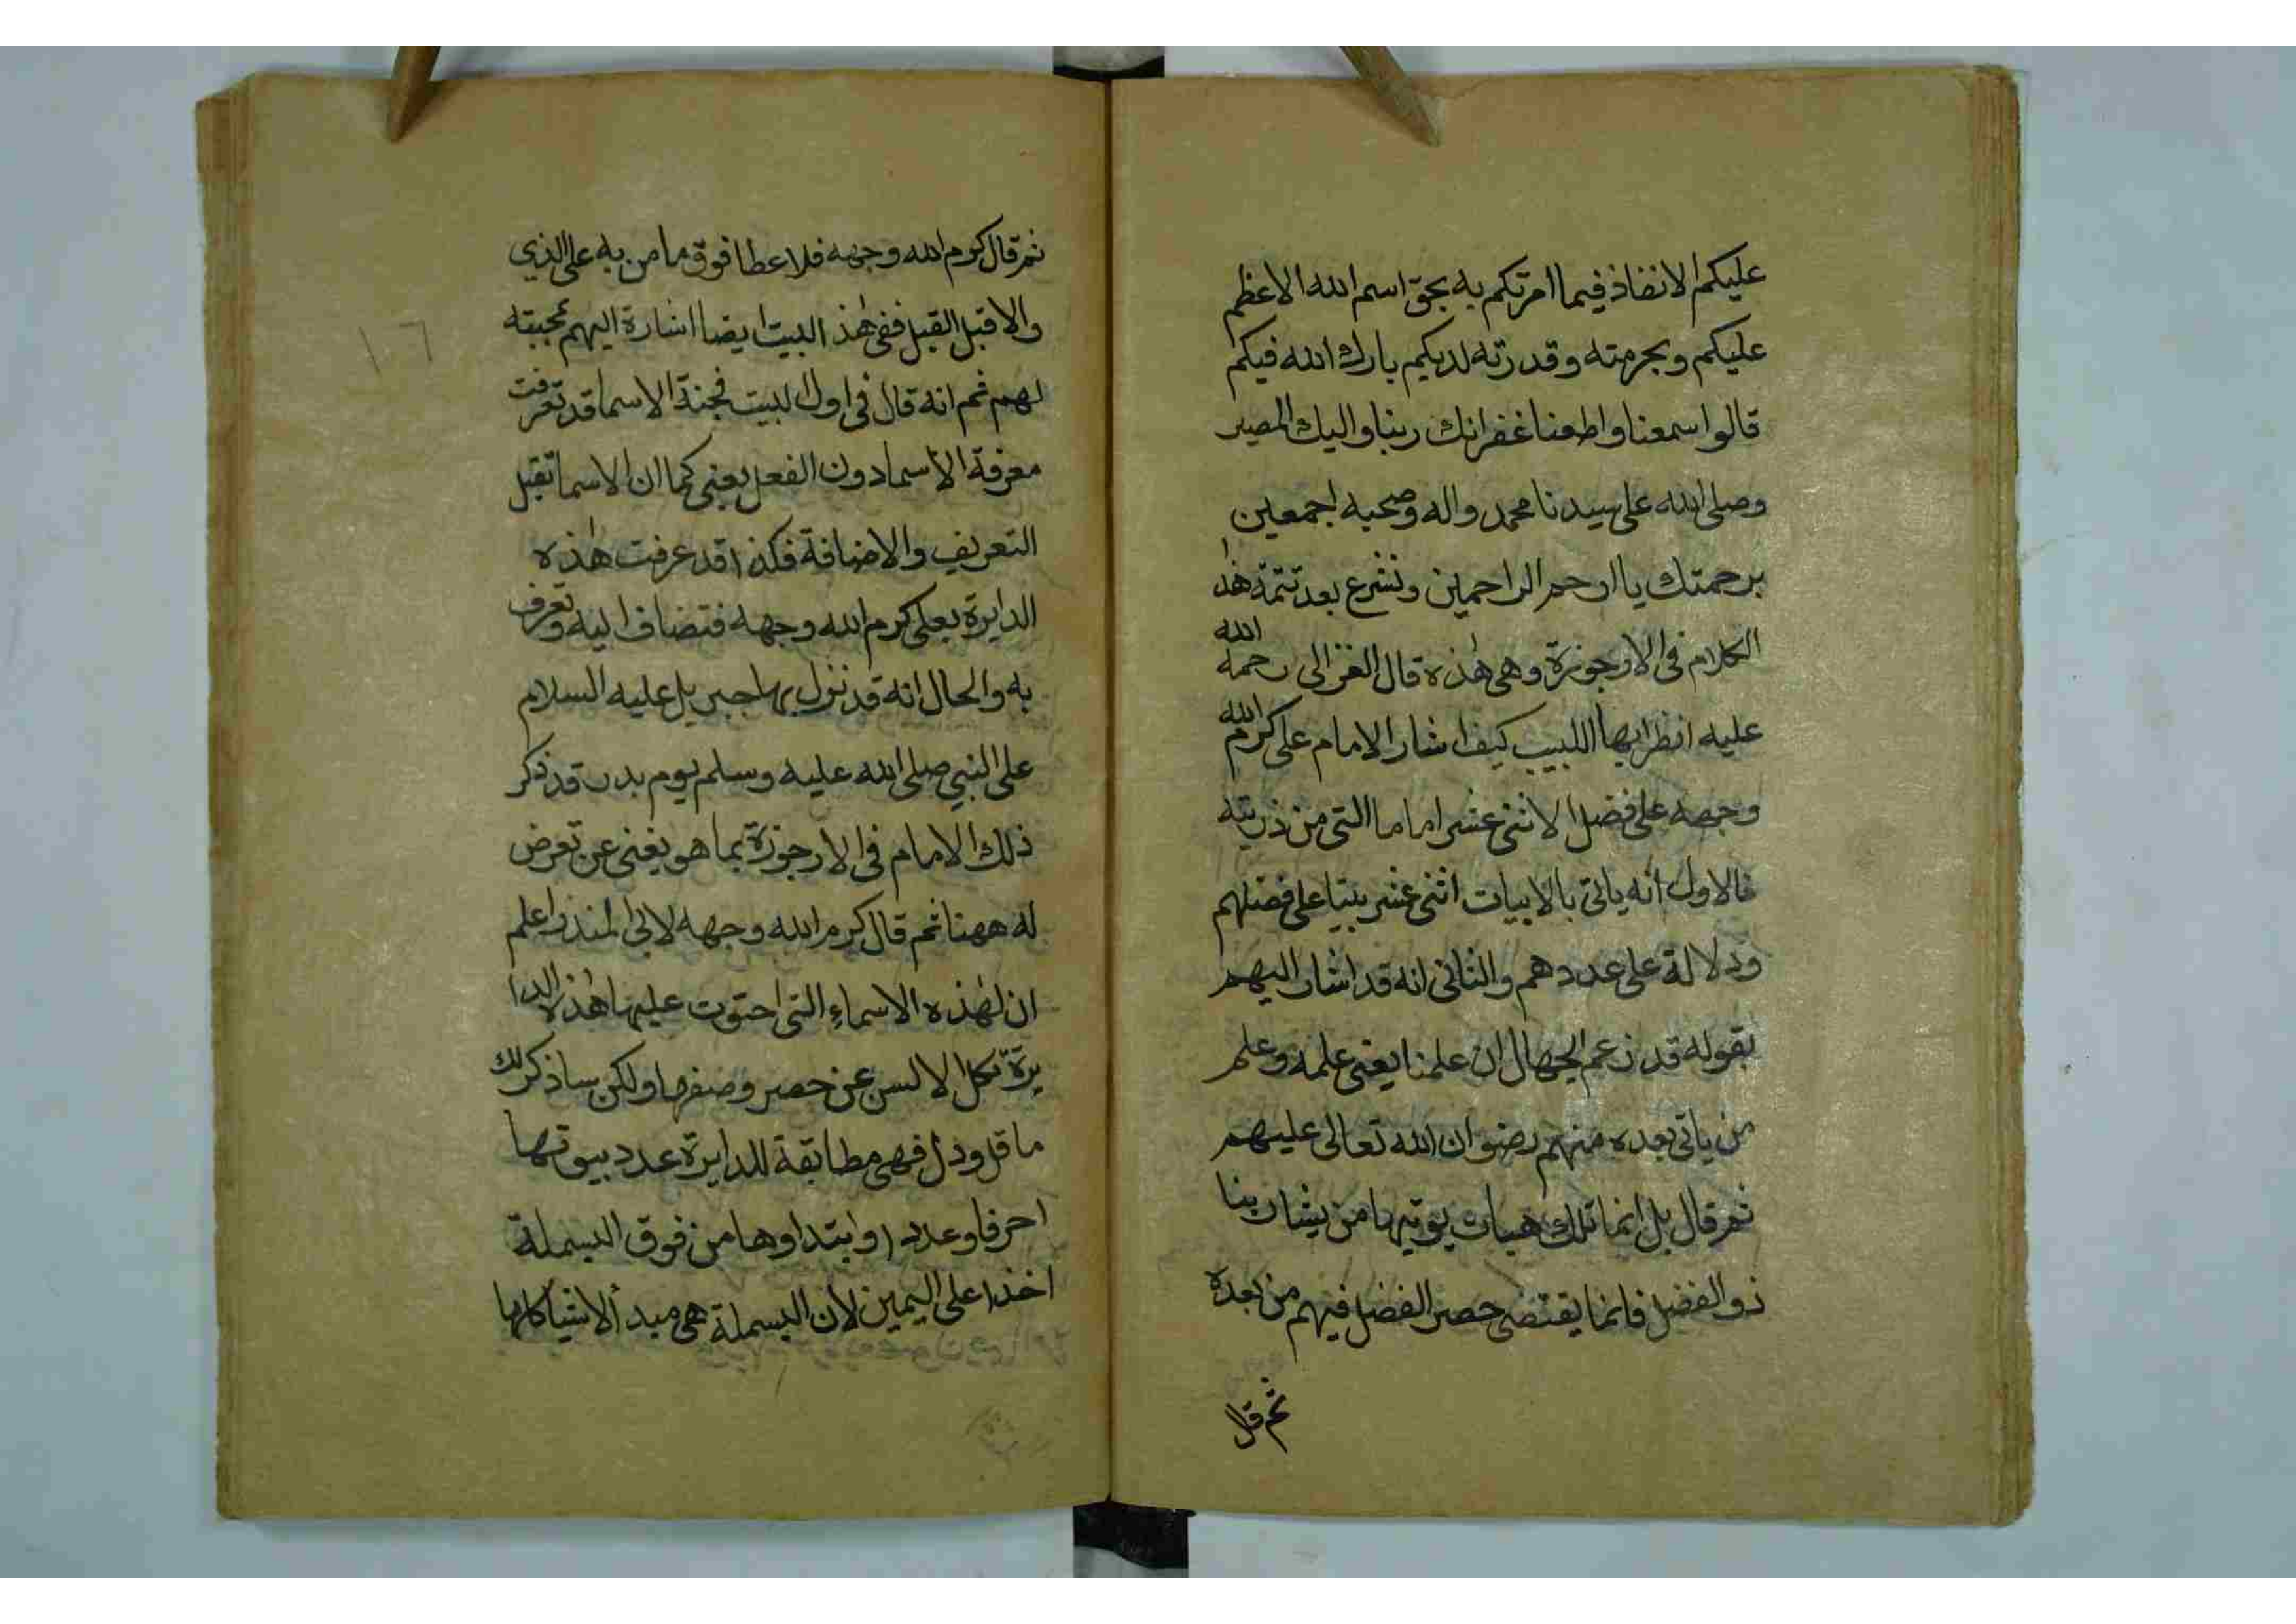 عليكم الانفاذ فيما امرتكم به بحق اسم الله الاعظم
عليكم وبحرمته وقدرته لديكم بارك الله فيكم
قالوا سمعنا واطعنا غفرانك ربنا واليك المصير
وصلى الله على سيدنا محمد واله وصحبه اجمعين
برحمتك يا ارحم الراحمين ونشرع بعد تتمة هذا
الكلام فى الارجوزة وهى هذه قال الغزالى رحمة الله
عليه انظر ايها اللبيب كيف اشار الامام على كرم الله
وجهه على فضل الاثنى عشر اماما التى من ذريته
فالاول انه ياتى بالابيات اثنى عشر بيتا على فضلهم
ودلالة على عددهم والثانى انه قد اشار اليهم
بقوله قد زعم الجهال ان علمنا يعنى علمه وعلم
من ياتى بعده منهم رضوان الله تعالى عليهم
ثم قال بل انما تلك هبات يوتيها من يشا ربنا
ذو الفضل فانما يقتضى حصر الفضل فيهم من بعده
ثم قال
ثم قال كرم الله وجهه فلا عطا فوق ما من به على الذي
والا قبل القبل ففى هذ البيت ايضا اشارة اليهم بمحبته
لهم ثم انه قال فى اول البيت فجنة الاسما قد تعرفت
معرفة الأسما دون الفعل يعنى كما ان الاسما تقبل
التعريف والاضافة فكذا قد عرفت هذه
الدايرة بعلى كرم الله وجهه فتضاف اليه وتعرف
به والحال انه قد نزل بها جبريل عليه السلام
على النبي صلى الله عليه وسلم يوم بدر قد ذكر
ذلك الامام فى الارجوزة بما هو يغنى عن تعرض
له ههنا ثم قال كرم الله وجهه لابى المنذر اعلم
ان لهذه الاسماء التى احتوت عليها هذه الدا
يرة تكل الالسن عن حصر وصفها ولكن ساذكر لك
ما قل ودل فهى مطابقة للدايرة عدد بيوتها
احرفا وعددا وابتداوها من فوق البسملة
اخذا على اليمين لان البسملة هى مبدأ الاشيا كلها
١٦